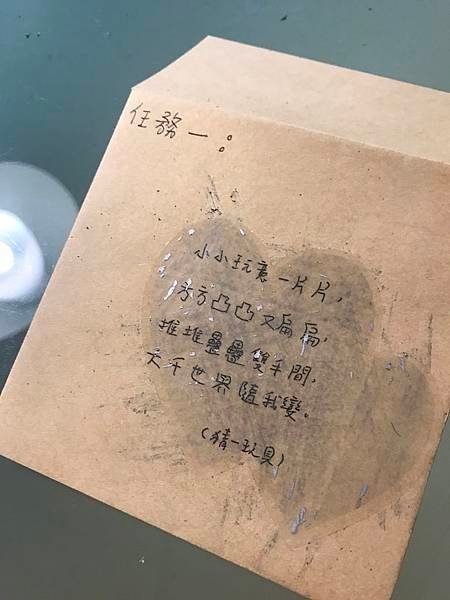 任務一：
小小玩意一片片，
方方凸凸又扁扁，
堆堆疊疊雙手間，
大千世界隨我變。
（猜一玩具）